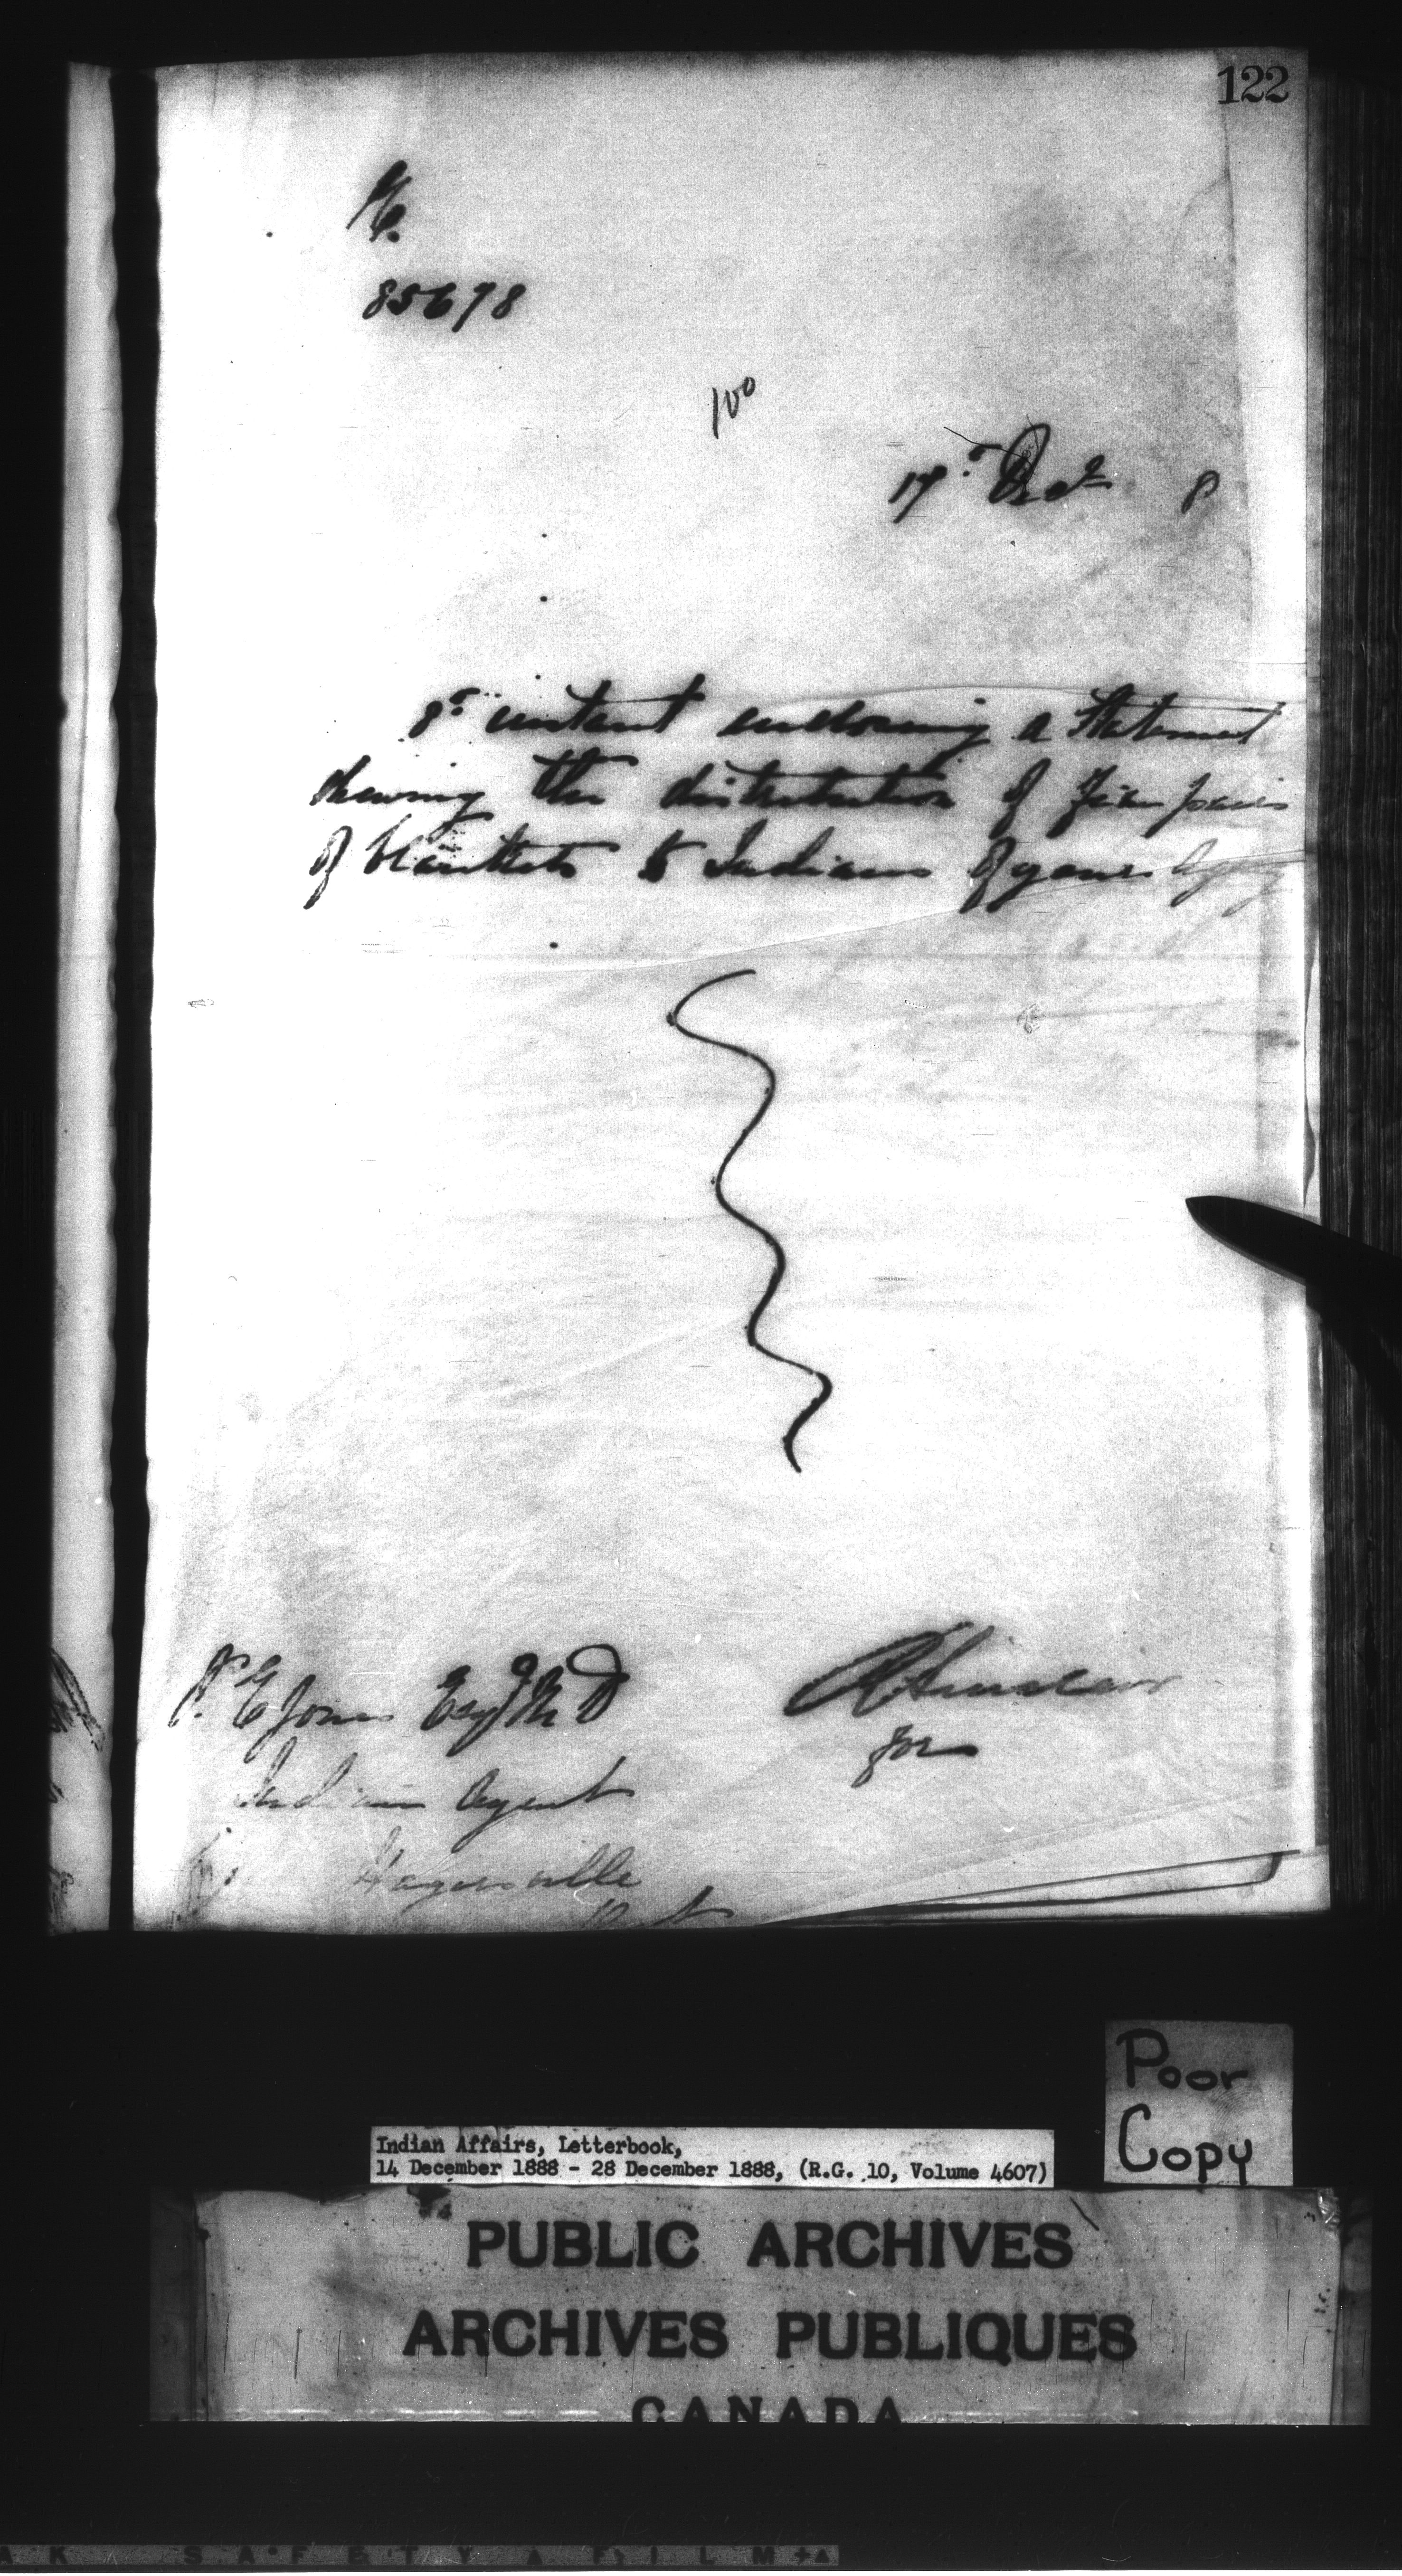 122
85678
100
17th Dec 8
8th instant enclosing a Statement
shewing the distribution of pairs
of blankets to Indians of your Agency
P. E Jones Esqr M D
Indian Agent
Hagersville
Ont
R Sinclair
for
Poor
Copy
Indian Affairs, Letterbook,
14 December 1888 - 28 December 1888, (R.G. 10, Volume 4607)
PUBLIC ARCHIVES
ARCHIVES PUBLIQUES
CANADA
AK SAFETY FILM